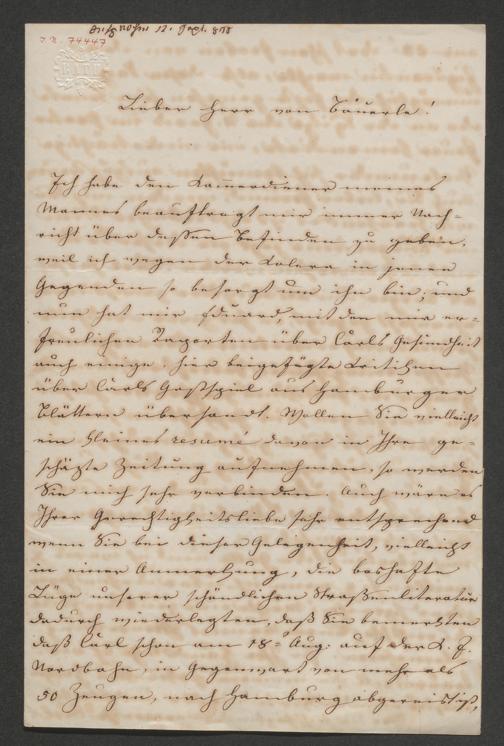 J. N. 74447
BATH
Lieber Herr von Bäuerle!
Ich habe den Kammerdiener meines
Mannes beauftragt mir immer Nach-
richt über dessen Befinden zu geben,
weil ich wegen der Kolera in jenen
Gegenden so besorgt um ihn bin, und
nun hat mir Eduard, mit den mir er-
freulichen Raporten über Carls Gesundheit
auch einige, hier beigefügte Kritiken
über Carls Gastspiel aus Hamburger
Blättern übersandt. Wollen Sie vielleicht
ein kleines resumé davon in Ihre ge-
schäzte Zeitung aufnehmen, so werden
Sie mich sehr verbinden. Auch wäre es
Ihrer Gerechtigkeitsliebe sehr entsprechend
wenn Sie bei dieser Gelegenheit, vielleicht
in einer Anmerkung, die boshafte
Lüge unserer schändlichen Straßenliteratur
dadurch wiederlegten, daß Sie bemerkten
daß Carl schon am 18t Aug: auf der K. F.
Nordbahn, in Gegenwart von mehr als
50 Zeugen, nach Hamburg abgereist ist,